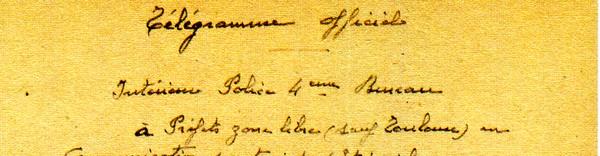 Télégramme officiel
Intérieur Police 4eme Bureau
à Préfets zone libre (sauf Toulouse) en